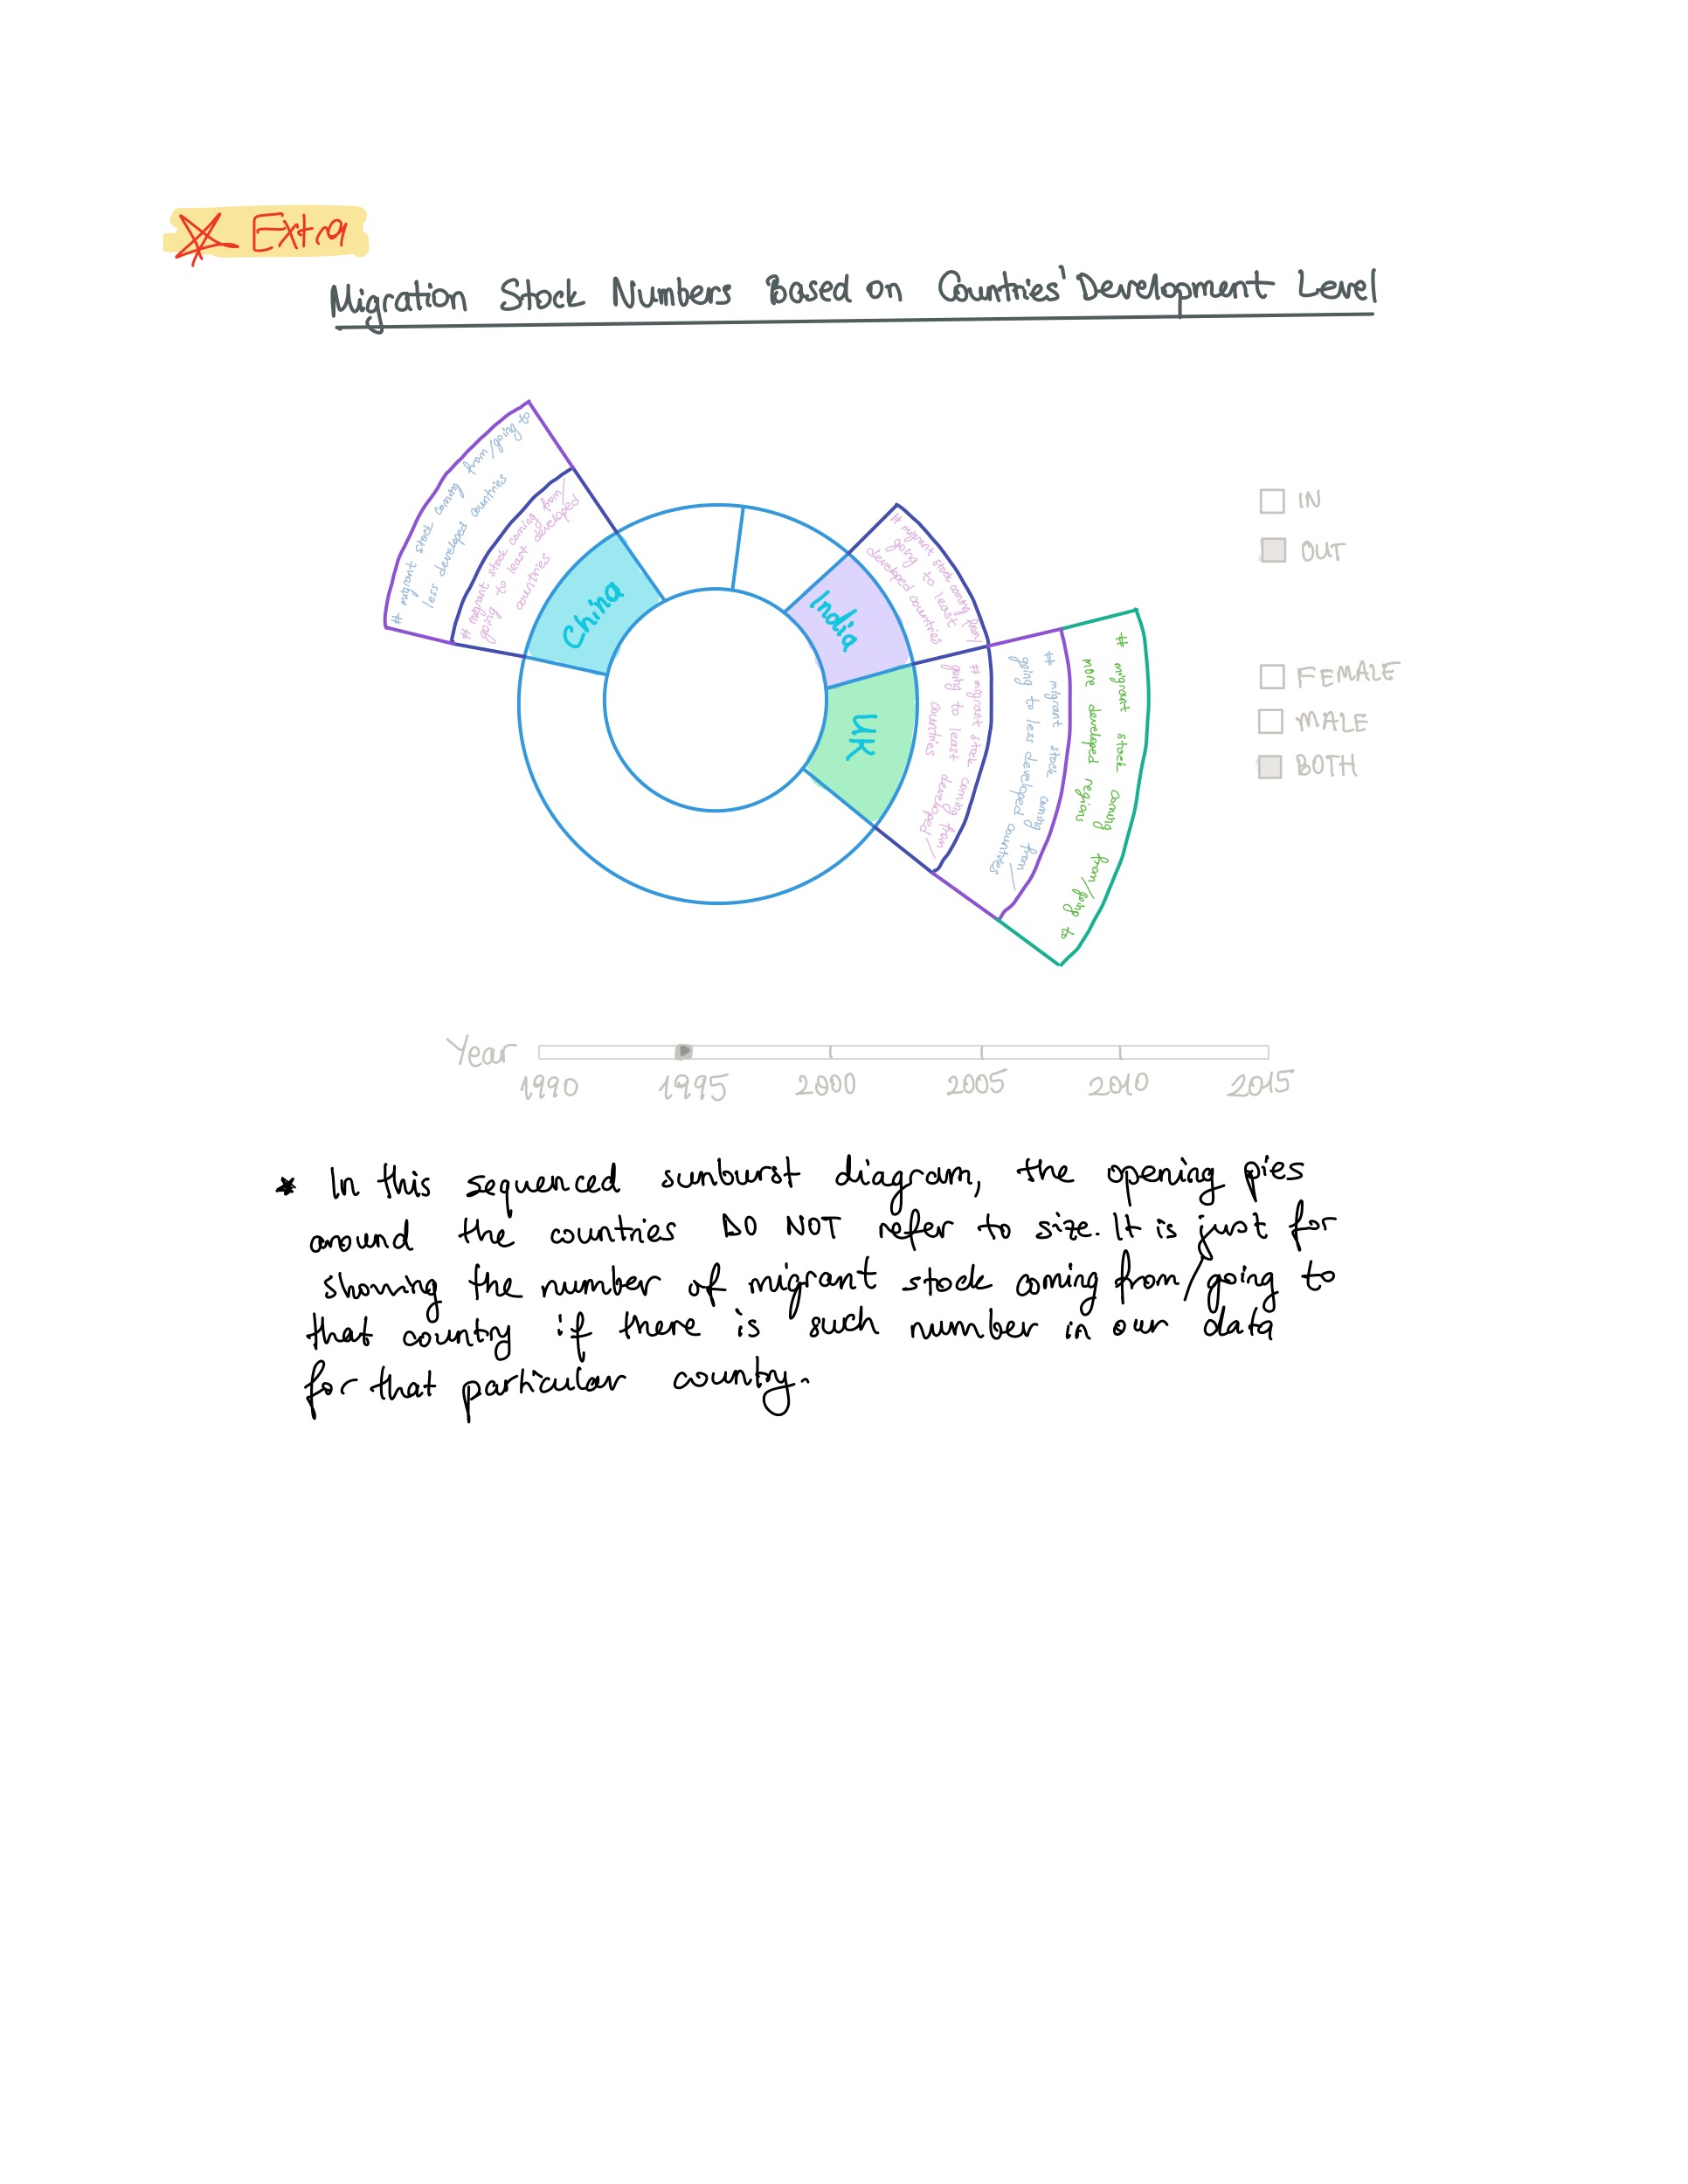 Extra
Migration Stock Numbers Based on Countries' Development Level
# migrant stock coming from/going to
less developed countries
# migrant stock coming from/
going to least developed
countries
China
# migrant stock coming from/
going to least
developed countries
India
UK
# migrant stock coming from/
going to least developed
countries
# migrant stock coming from/
going to less developed countries
# migrant stock coming from/going to
more developed regions
IN
OUT
FEMALE
MALE
BOTH
Year
1990 1995 2000 2005 2010 2015
* In this sequenced sunburst diagram, the opening pies
around the countries DO NOT refer to size. It is just for
showing the number of migrant stock coming from/going to
that country if there is such number in our data
for that particular country.